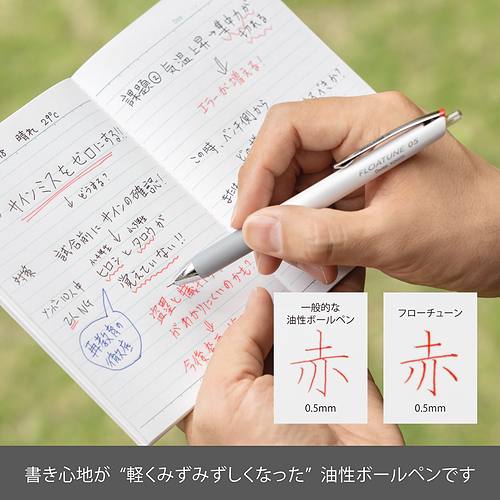 晴れ 29℃
サインミスをゼロにする!!
↓ どうする?
対策
試合前にサインの確認!
ヒロシとタロウが
覚えていない!!
メンバー10人中
2人NG
再教育の
徹底
課題② 気温上昇→集中力が
切れる
↓
エラーが増える!
この時、ベンチ側から
FLOATUNE 05
一般的な
油性ボールペン
赤
0.5mm
フローチューン
赤
0.5mm
書き心地が “軽くみずみずしくなった” 油性ボールペンです